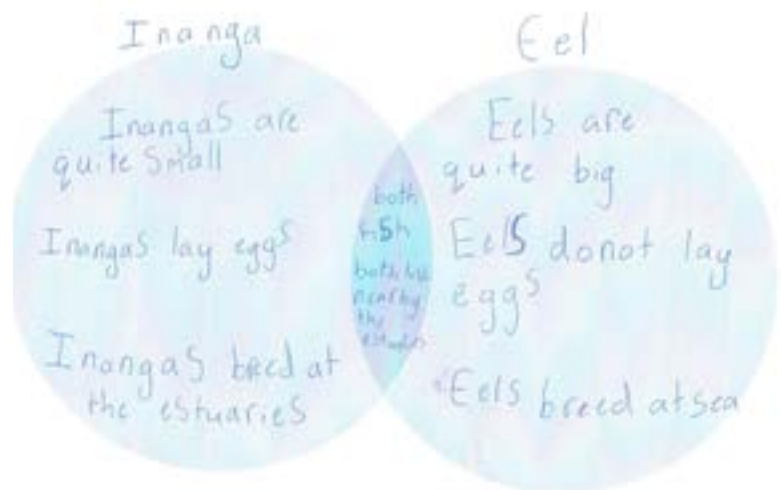 Inanga
Eel
Inangas are
quite small
Inangas lay eggs
Inangas breed at
the estuaries
both
fish
both
nearby
the
Eels are
quite big
Eels donot lay
eggs
Eels breed at sea